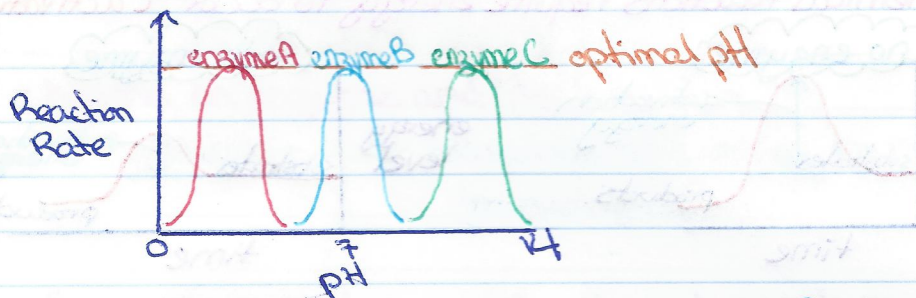 enzymeA enzymeB enzymeC optimal pH
Reaction
Rate
0 7 14
pH